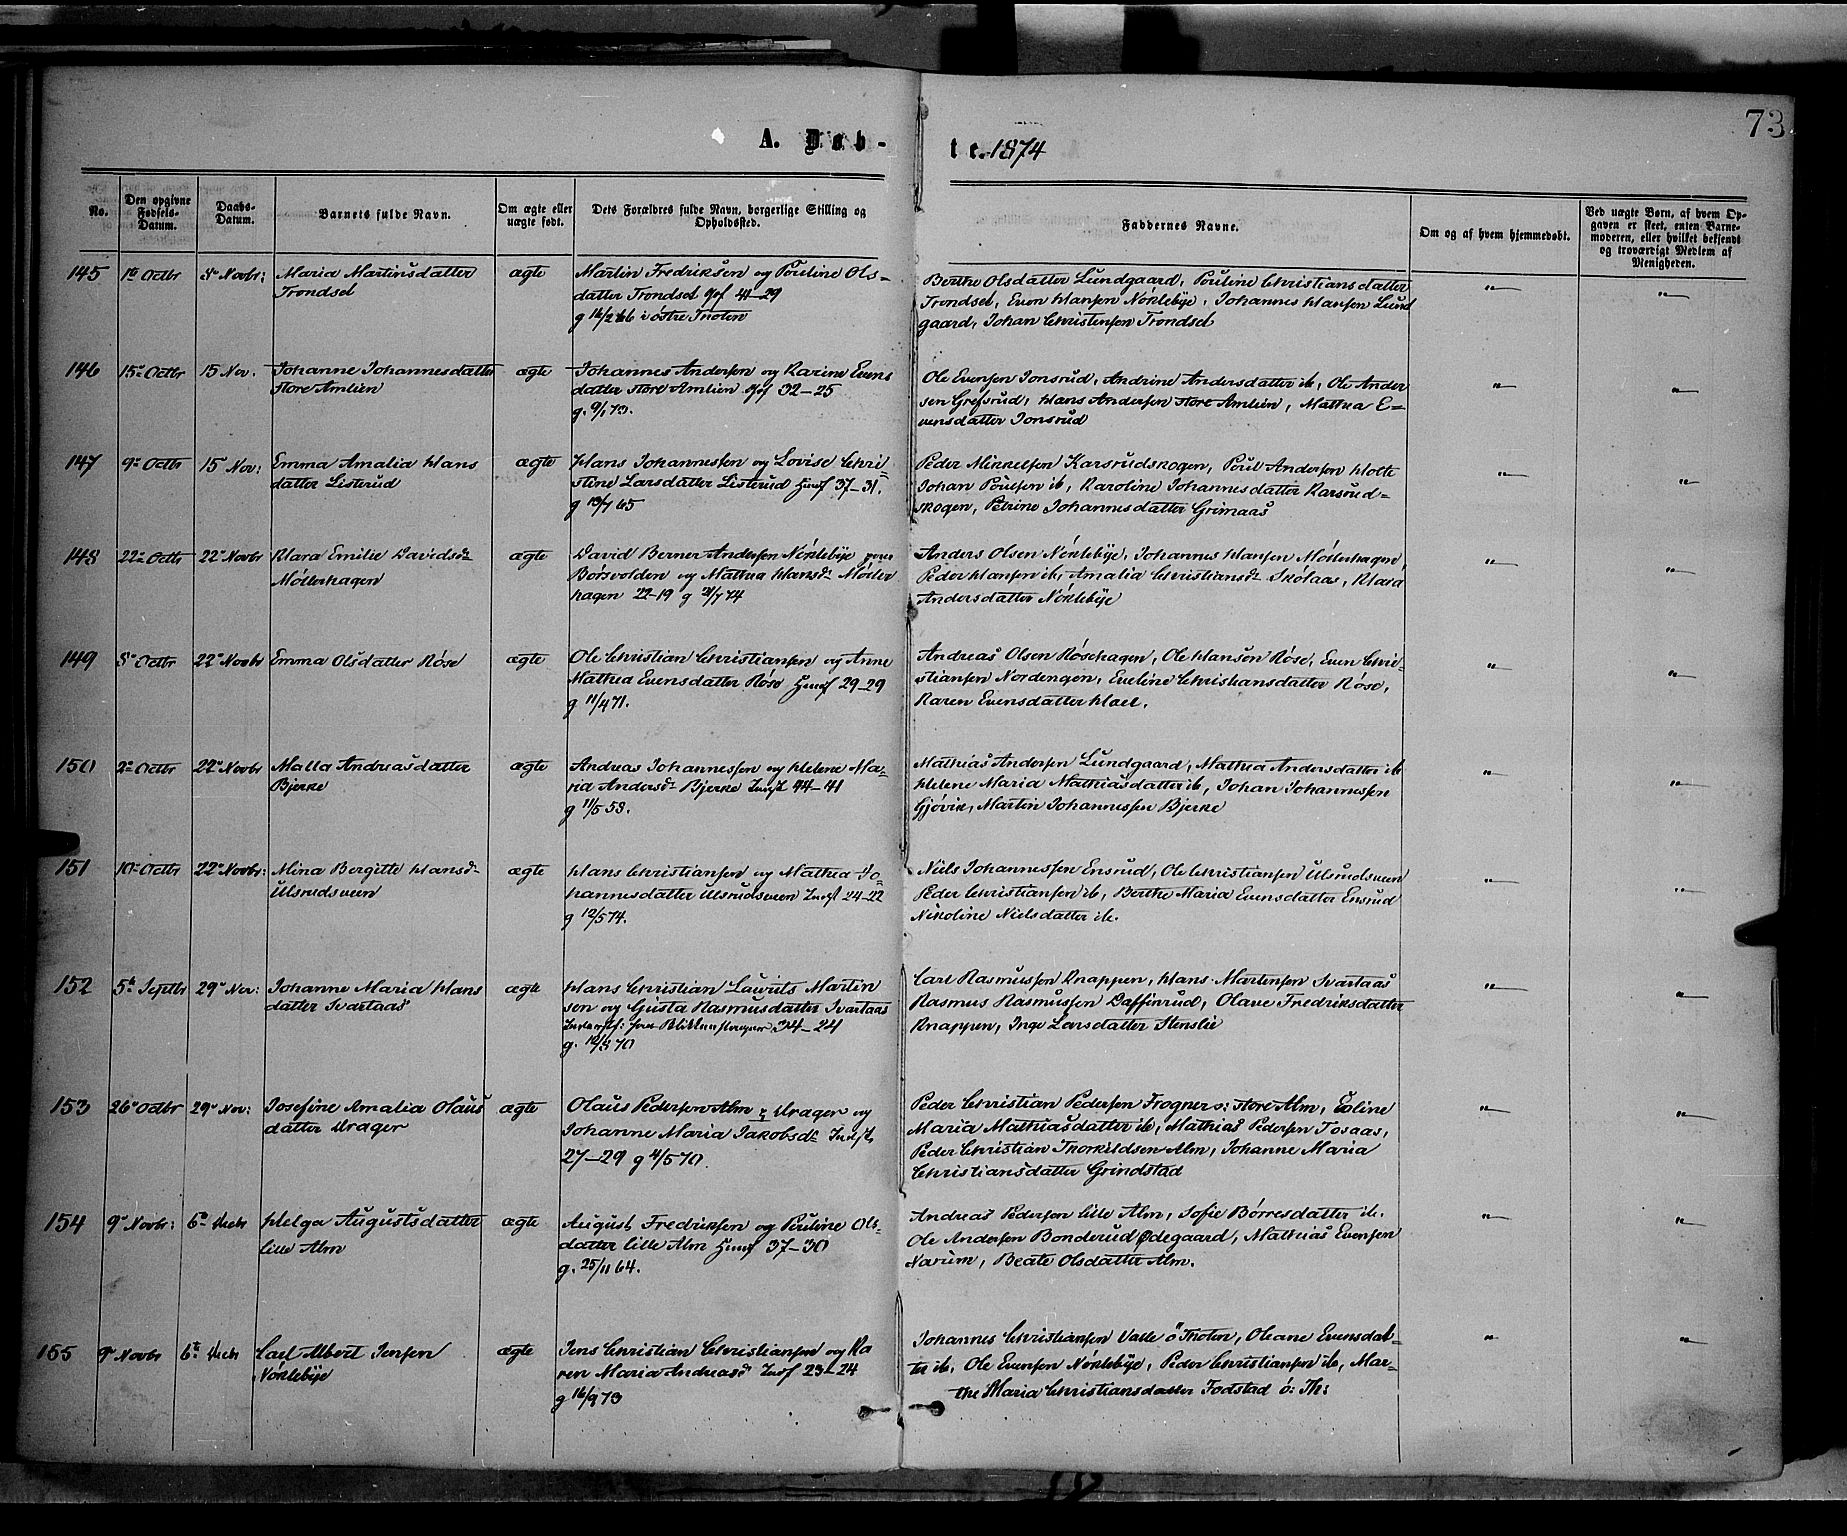 73
A. Døb-
te. 1874
No.
Den opgivne Fødsels-Datum.
Daabs-Datum.
Barnets fulde Navn.
Om ægte eller uægte født.
Dets Forældres fulde Navn, borgerlige Stilling og Opholdssted.
Faddernes Navne.
Om og af hvem hjemmedøbt.
Ved uægte Børn, af hvem Opgaven er skeet, enten Barnemoderen, eller hvilket bekjendt og troværdigt Medlem af Menigheden.
145
1te Octbr
8de Novbr:
Maria Martinsdatter
Trondset
ægte
Martin Fredriksen og Pouline Ols-
datter Trondset Gf 41-29
g 16/2 66 i østre Thoten
Berthe Olsdatter Lundgaard, Pouline Christiansdatter
Trondset, Even Hansen Nøklebye, Johannes Hansen Lund
gaard, Johan Christensen Trondset
"
"
146
15de Octbr
15 Nov.
Johanne Johannesdatter
store Amlien
ægte
Johannes Andersen og Karine Evens
datter store Amlien Gf 32-25
g. 9/1 70.
Ole Evensen Jonsrud, Andrine Andersdatter ib, Ole Ander
sen Grefsrud, Hans Andersen store Amlien, Mathea E-
vensdatter Jonsrud
"
"
147
9de Octbr
15 Nov:
Emma Amalia Hans
datter Listerud
ægte
Hans Johannessen og Lovise Chri-
stine Larsdatter Listerud Husf 37-31.
g 13/7 65
Peder Mikkelsen Karsrudskogen, Poul Andersen Holte
Johan Poulsen ib, Karoline Johannesdatter Karsrud-
skogen, Petrine Johannesdatter Grimaas
"
"
148
22de Octbr
22de Novbr
Klara Emilie Davidsdr
Møllerhagen
ægte
David Berner Andersen Nøklebye
Børsvolden og Mathea Hansdr Møller
hagen 22-19 g 21/7 74
Anders Olsen Nøklebye, Johannes Hansen Møllerhagen,
Peder Hansen ib, Amalia Christiansdr Skolaas, Klara
Andersdatter Nøklebye
"
"
149
8de Octbr
22de Novbr
Emma Olsdatter Røse
ægte
Ole Christian Christiansen og Anne
Mathea Evensdatter Røse Husf 29-29
g 11/4 71.
Andreas Olsen Røsehagen, Ole Hansen Røse, Even Chri-
stiansen Nordengen, Eveline Christiansdatter Røse,
Karen Evensdatter Hoel.
"
"
150
2de Octbr
22de Novbr
Malla Andreasdatter
Bjerke
ægte
Andreas Johannessen og Helene Ma-
ria Andersdr Bjerke Indst 44-41
g 11/5 53.
Mathias Andersen Lundgaard, Mathea Andersdatter ib
Helene Maria Mathiasdatter ib, Johan Johannessen
Gjøvik, Martin Johannessen Bjerke
"
"
151
10de Octbr
22de Novbr:
Mina Bergitte Hansdr
Ulsrudsveen
ægte
Hans Christiansen og Mathea Jo-
hannesdatter Ulsrudsveen Indst 24-22
g 12/5 74.
Niels Johannessen Ensrud, Ole Christiansen Ulsrudsveen
Peder Christiansen ib, Berthe Maria Evensdatter Ensrud
Nikoline Nielsdatter ib.
"
"
152
5te Septbr
29de Nov:
Johanne Maria Hans
datter Svartaas
ægte
Hans Christian Laurits Martin
sen og Gusta Rasmusdatter Svartaas
34-24
g. 12/8 70
Carl Rasmussen Knappen, Hans Martinsen Svartaas
Rasmus Rasmussen Daffinrud, Olave Fredriksdatter
Knappen, Inge Larsdatter Stenslie
"
"
153
26de Octbr
29de Nov:
Josefine Amalia Olaus
datter Krager
ægte
Olaus Pedersen Alm Krager og
Johanne Maria Jakobsdr Indst
27-29 g 4/5 70.
Peder Christian Pedersen Frogner o: store Alm, Eoline
Maria Mathiasdatter ib, Mathias Pedersen Tosaas,
Peder Christian Thorkildsen Alm, Johanne Maria
Christiansdatter Grindstad
"
"
154
9de Novbr:
6te Decbr
Helga Augustsdatter
lille Alm
ægte
August Fredriksen og Pauline Ols-
datter lille Alm Husf 37-30
g. 25/11 64.
Andreas Pedersen lille Alm, Sofie Børresdatter ib.
Ole Andersen Bonderud Ødegaard, Mathias Evensen
Narum, Beate Olsdatter Alm.
"
"
155
9de Novbr
6te Decbr
Carl Albert Jensen
Nøklebye
ægte
Jens Christian Christiansen og Ka
ren Maria Andreasdr Indf 23-24
g 16/9 73
Johannes Christiansen Valle ø Thoten, Oleane Evensdat-
ter ib, Ole Evensen Nøklebye, Peder Christiansen ib, Mar-
the Maria Christiansdatter Fodstad ø: Th:
"
"